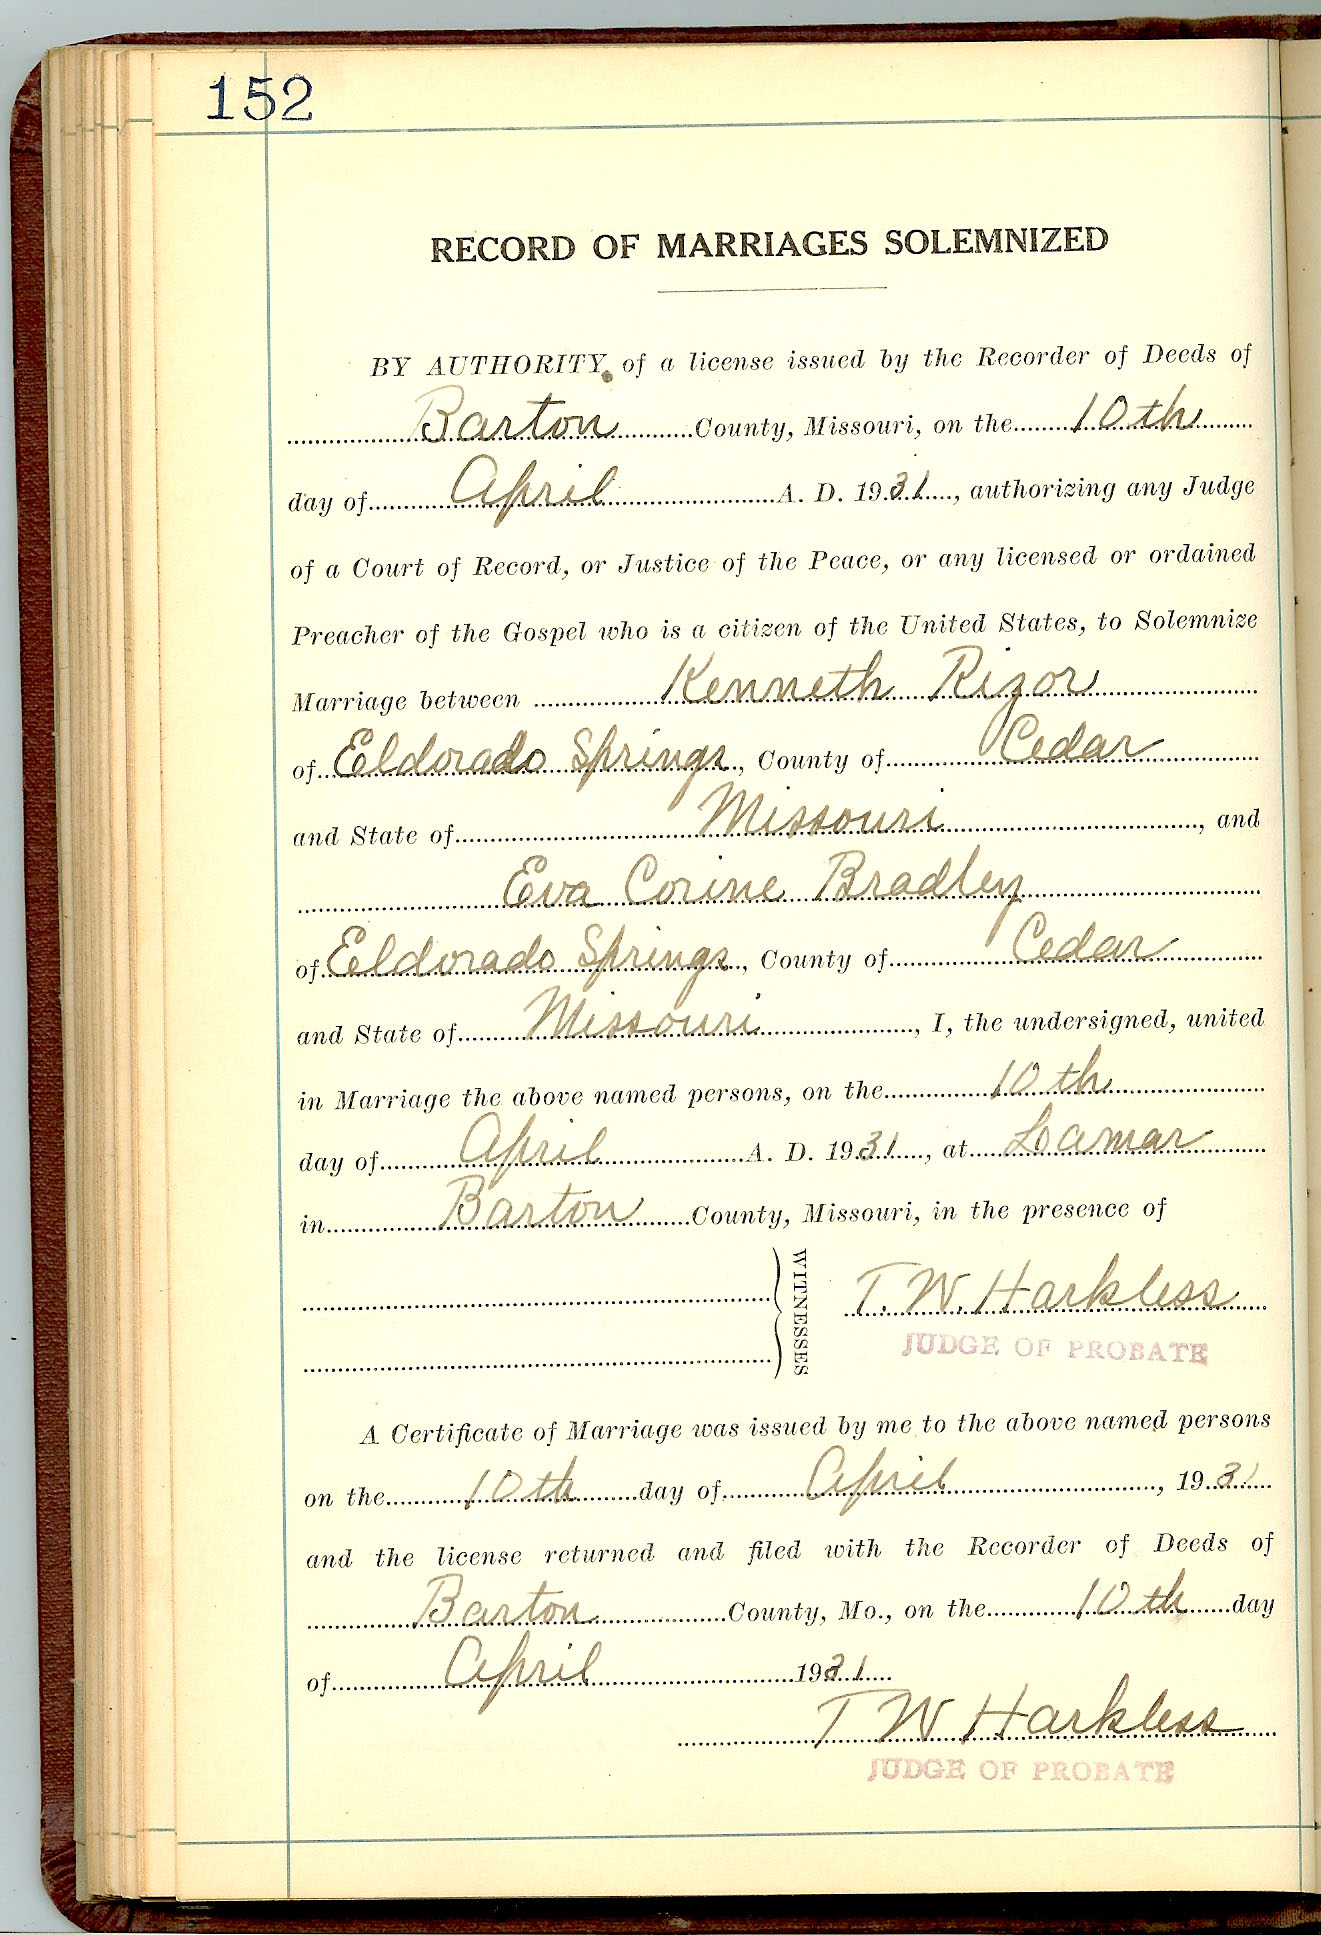 152
RECORD OF MARRIAGES SOLEMNIZED
BY AUTHORITY, of a license issued by the Recorder of Deeds of
Barton County, Missouri, on the 10th
day of April A. D. 1931, authorizing any Judge
of a Court of Record, or Justice of the Peace, or any licensed or ordained
Preacher of the Gospel who is a citizen of the United States, to Solemnize
Marriage between Kenneth Rizor
of Eldorado Springs, County of Cedar
and State of Missouri, and
Eva Corine Bradley
of Eldorado Springs, County of Cedar
and State of Missouri, I, the undersigned, united
in Marriage the above named persons, on the 10th
day of April A. D. 1931, at Lamar
in Barton County, Missouri, in the presence of
WITNESSES
T. W. Harkless
JUDGE OF PROBATE
A Certificate of Marriage was issued by me to the above named persons
on the 10th day of April, 1931
and the license returned and filed with the Recorder of Deeds of
Barton County, Mo., on the 10th day
of April 1931
T W Harkless
JUDGE OF PROBATE